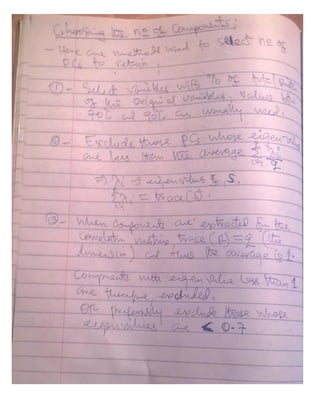 Choosing the no of Components;
- Here are methods used to select no of
PCs to retain;
① - Select variables with % of total
of the original variables, values
70% and 90% are usually used.
② - Exclude those PCs whose eigen-value
are less than the average Σ λi / q
⇒ λi → eigenvalue S.
Σ λi = trace(S).
③ - When components are extracted from the
Correlation matrix trace (R) = q (the
dimension) and thus the average is 1.
Components with eigen value less than 1
are therefore excluded.
OR preferably exclude those whose
eigenvalues are < 0.7